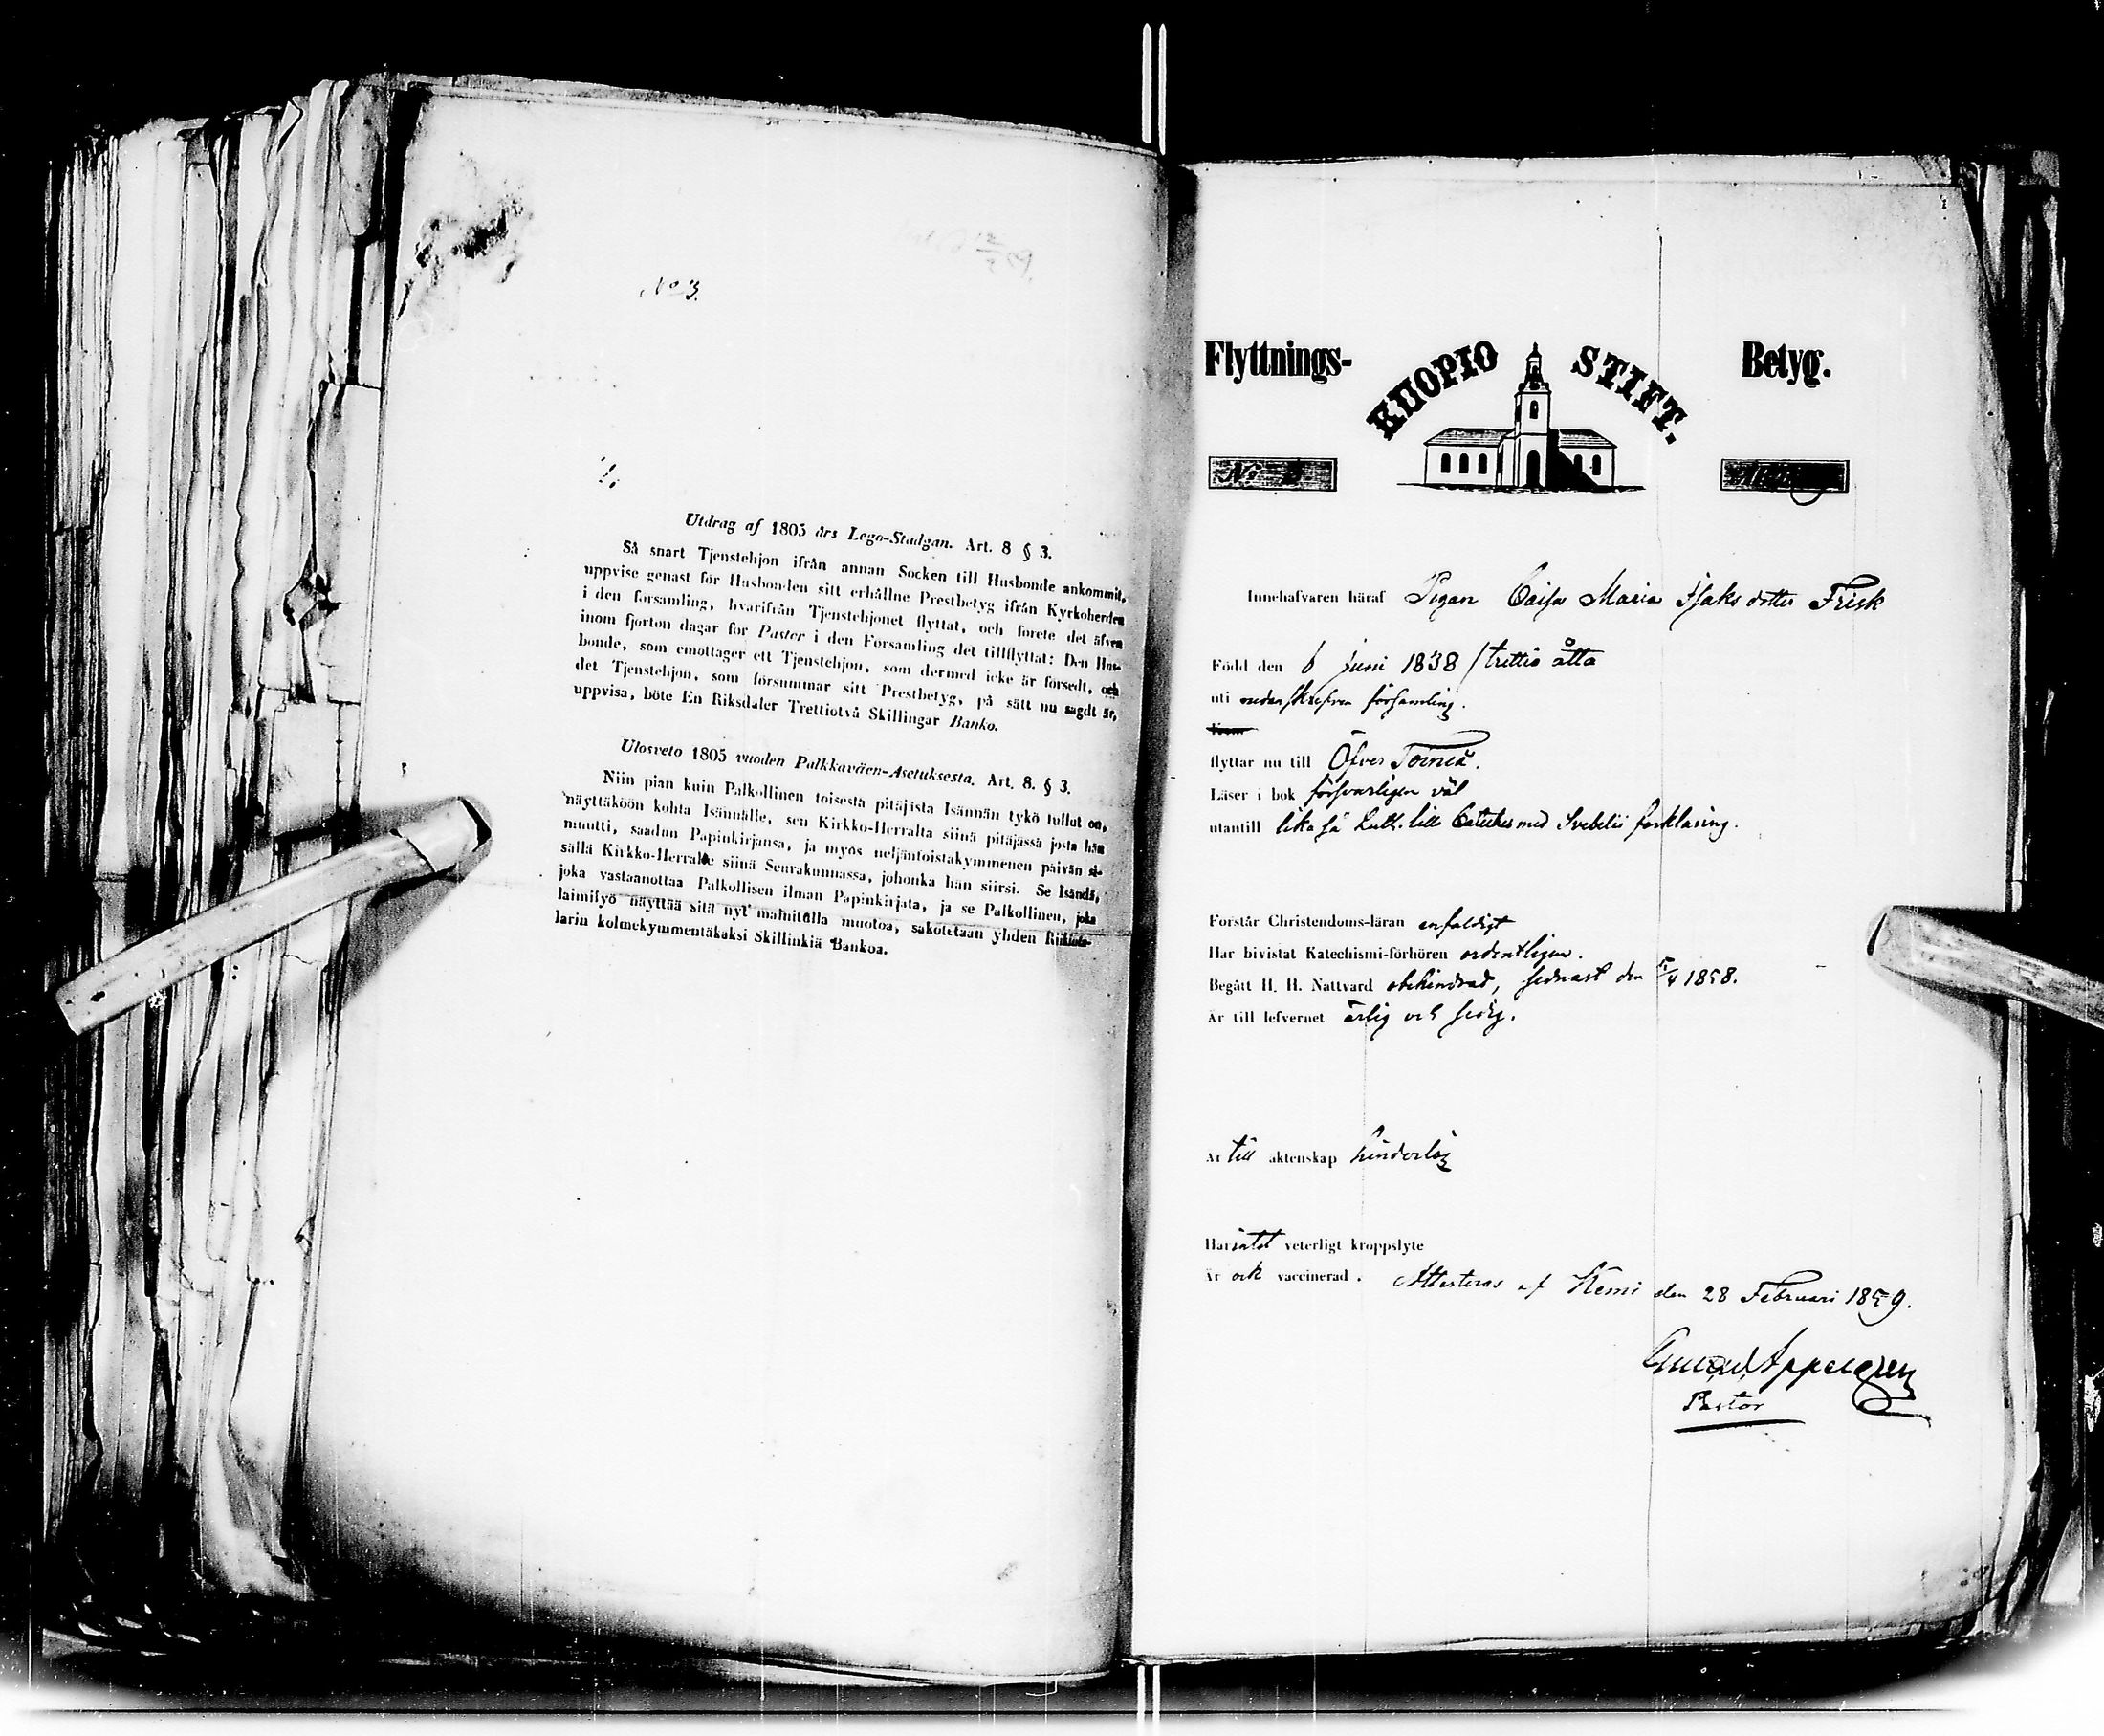 No 3.
Utdrag af 1805 års Lego-Stadgan. Art. 8 § 3.
Så snart Tjenstehjon ifrån annan Socken till Husbonde ankommit,
uppvise genast för Husbonden sitt erhållne Prestbetyg ifrån Kyrkoherden
i den församling, hvarifrån Tjenstehjonet flyttat, och förete det äfven
inom fjorton dagar för Pastor i den Församling det tillflyttat: Den Hus-
bonde, som emottager ett Tjenstehjon, som dermed icke är försedt, och
det Tjenstehjon, som försummar sitt Prestbetyg, på sätt nu sagdt är,
uppvisa, böte En Riksdaler Trettiotvå Skillingar Banko.
Ulosveto 1805 vuoden Palkkaväen-Asetuksesta. Art. 8. § 3.
Niin pian kuin Palkollinen toisesta pitäjista Isännän tykö tullut on,
näyttäköön kohta Isännälle, sen Kirkko-Herralta siinä pitäjässä josta hän
muutti, saadun Papinkirjansa, ja myös neljäntoistakymmenen päivän si-
sällä Kirkko-Herralle siinä Seurakunnassa, johonka hän siirsi. Se Isändä,
joka vastaanottaa Palkollisen ilman Papinkirjata, ja se Palkollinen, joka
laimilyö näyttää sitä nyt mainitulla muotoa, sakotetaan yhden Riikinta-
larin kolmekymmentäkaksi Skillinkiä Bankoa.
Flyttnings- KUOPIO STIFT. Betyg.
No
Innehafvaren häraf Pigan Caisa Maria Isaksdotter Frisk
Född den 6 Juni 1838 / trettio åtta
uti underskrefven församling.
flyttar nu till Öfver Torneå.
Läser i bok försvarligen väl
utantill lika så Luth. lilla Cateches med Svebelii förklaring.
Förstår Christendoms-läran enfaldigt
Har bivistat Katechismi-förhören ordentligen.
Begått H. H. Nattvard obehindrad, sednast den 5/4 1858.
Är till lefvernet ärlig och sedig.
Är till äktenskap hinderlös
Har intet veterligt kroppslyte
Är ock vaccinerad. Attesteras af Kemi den 28 Februari 1859.
Appelgren
Pastor